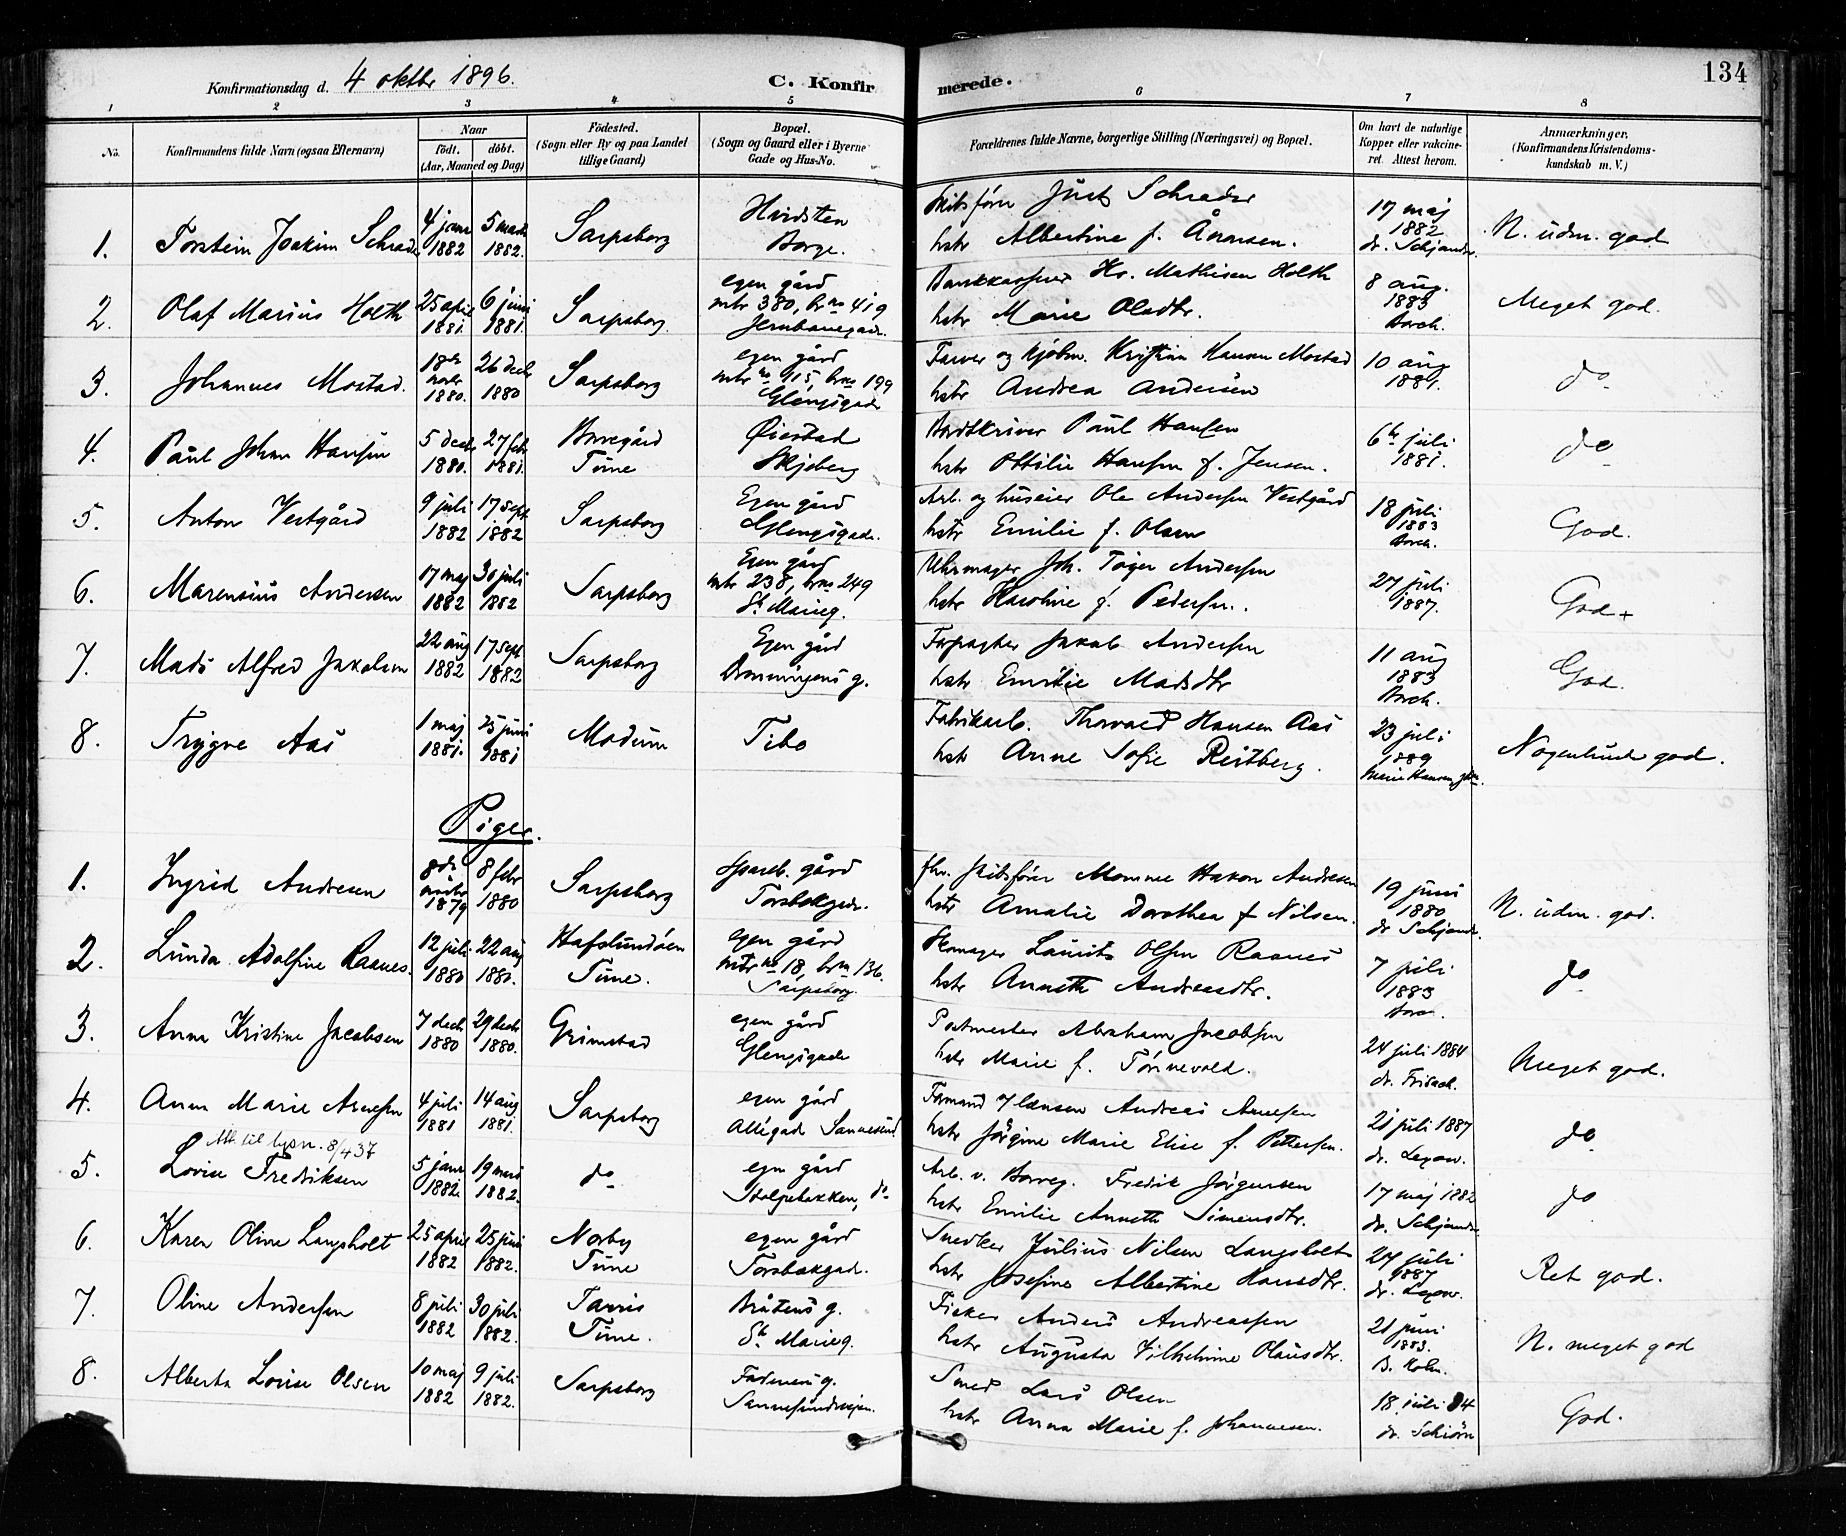 134
Konfirmationsdag d. 4 oktbr 1896.
C. Konfirmerede.
1 2 3 4 5 6 7 8
No.
Konfirmandens fulde Navn (ogsaa Efternavn)
Naar
født. døbt.
(Aar, Maaned og Dag)
Fødested.
(Sogn eller By og paa Landet
tillige Gaard)
Bopæl.
(Sogn og Gaard eller i Byerne
Gade og Hus-No.
Forældrenes fulde Navne, borgerlige Stilling (Næringsvei) og Bopæl.
Om havt de naturlige
Kopper eller vakcine-
ret. Attest herom.
Anmærkninger.
(Konfirmandens Kristendoms-
kundskab m. V.)
1. Torstein Joakim Schrader
4 janr 1882
5 marts 1882.
Sarpsborg
Hvidsten
Borge.
Skibsfører Just Schrader
hstr Albertine f. Åronsen.
17 maj
1882
dr. Schjander.
N. udm. god
2. Olaf Marius Holth
25 april 1881.
6 juni 1881.
Sarpsborg.
egen gård
mtr 380, brno 419
Jernbanegade.
Bankkasserer Hr. Mathisen Holth
hstr Marie Olsdtr.
8 aug.
1883
Borch.
Meget god.
3. Johannes Mostad.
18de novbr 1880.
26 decbr 1880
Sarpsborg
egen gård
mtr no 415, brno 199
Glengsgade
Farver og kjøbm. Kristian Hansen Mostad
hstr Andrea Andersen
10 aug
1881.
do
4. Paul Johan Hansen
5 decbr 1880.
27 febr 1881.
Borregård
Tune
Øiestad
Skjeberg
Bordskriver Paul Hansen
hstr Ottilie Hansen f. Jensen.
6te juli
1881.
do
5. Anton Vestgård
9 juli 1882
17 sept 1882
Sarpsborg
Egen gård
Glengsgade.
Arb. og huseier Ole Andersen Vestgård
hstr Emilie f. Olsen
18 juli
1883
Borch.
God.
6. Marensius Andersen
17 maj 1882
30 juli 1882
Sarpsborg
Egen gård
mtr 238, brno 249
St Marieg.
Uhrmager Joh. Tøger Andersen
hstr Karoline f. Pedersen.
27 juli
1887.
God +
7. Mads Alfred Jakobsen
22 aug 1882
17 sept 1882
Sarpsborg
Egen gård
Dronningens g.
Forpagter Jakob Andersen
hstr Emilie Madsdtr
11 aug
1883
Borch.
God.
8. Trygve Aas
1 maj 1881.
25 juni 1881
Modum
Tibo
Fabrikarb. Thorvald Hansen Aas
hstr Anne Sofie Ristberg.
23 juli
1889
Nogenlunde god.
Piger.
1. Ingrid Andresen
8de 1879
8 febr 1880
Sarpsborg
Spareb. gård
Torsbækgade.
fhv. skibsfører Momme Hakon Andresen
hstr Amalie Dorothea f Nilsen.
19 juni
1880
dr Schjander.
N. udm. god.
2. Lunda Adolfine Raanes.
12 juli 1880
22 aug 1880.
Hafslundøen
Tune.
egen gård
mtr no 18, brno 136.
Sarpsborg.
Skomager Laurits Olsen Raanes
hstr Annette Andreasdtr.
7 juli
1883
Borch.
do
3. Anna Kristine Jacobsen
7 decbr 1880
29 decbr 1880.
Grimstad
egen gård
Glengsgade
Postmester Abraham Jacobsen
hstr Marie f. Tønnevold.
24 juli 1884
dr. Frisack.
Meget god.
4. Anna Marie Arnesen
4 juli 1881
14 aug 1881.
Sarpsborg
egen gård
Allégad Sannesund
Formand Andreas Arnesen
hstr Jørgine Marie Elise f. Pettersen.
21 juli 1887
dr. Lexow.
do
Att. til lysn. 8/4 37
5. Lovise Fredriksen
5 janr 1882.
19 marts 1882.
do
egen gård
Stolpebækken, do
Arb. v. Borreg. Fredrik Jørgensen
hstr Emilie Annette Simensdtr.
17 maj 1882
dr. Schjander
do
6. Karen Oline Langsholt
25 april 1882
25 juni 1882.
Norby
Tune
egen gård
Torsbækgad.
Snedker Julius Nilsen Langsholt
hstr Josefine Albertine Hansdtr.
27 juli
1887
dr. Lexow.
Ret god.
7. Oline Andersen
8 juli 1882
30 juli 1882.
Tarris
Tune.
Bråtens g.
St Marieg.
Fisker Anders Andreassen
hstr Augusta Vilhelmine Olausdtr.
21 juni
1883.
B. Holm.
N. meget god
8. Alberta Lovise Olsen
10 maj 1882
9 juli 1882.
Sarpsborg
Sannesundsvejen.
Smed Lars Olsen
hstr Anna Marie f. Johannesen.
18 juli 84
dr. Schiörn
God.